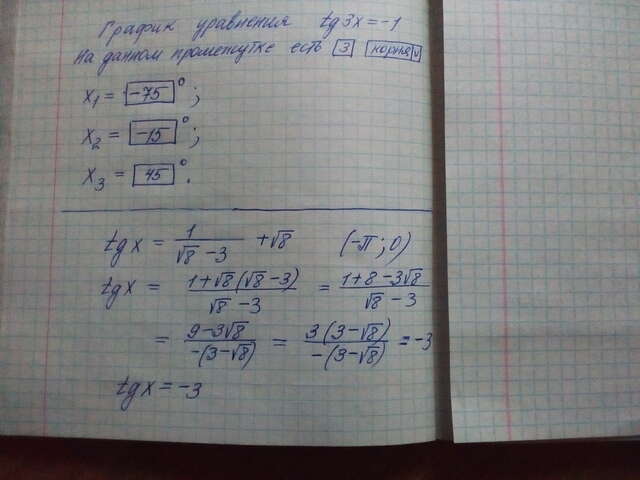 График уравнения tg3x = -1
На данном промежутке есть 3 корня
x₁ = -75°;
x₂ = -15°;
x₃ = 45°.
tgx = 1/(√8 - 3) + √8 (-π; 0)
tgx = (1+√8(√8-3))/(√8 - 3) = (1+8-3√8)/(√8 - 3)
= (9-3√8)/(-(3-√8)) = (3(3-√8))/(-(3-√8)) = -3
tgx = -3